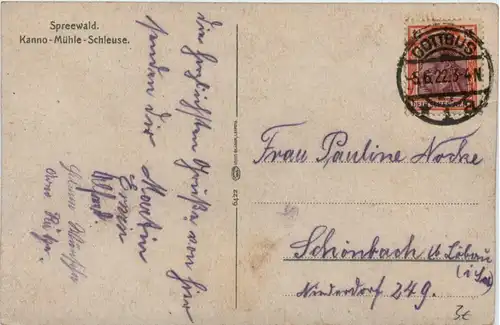 Spreewald.
Kanno-Mühle-Schleuse.
COTTBUS
-5.6.22.3-4N.
Die herzlichsten Grüße von hier
senden dir Martin
Erwin
Alfred
Frau Pauline Nocke
Schönbach b/Löbau
(i/Sa)
Niederdorf 249.
3€